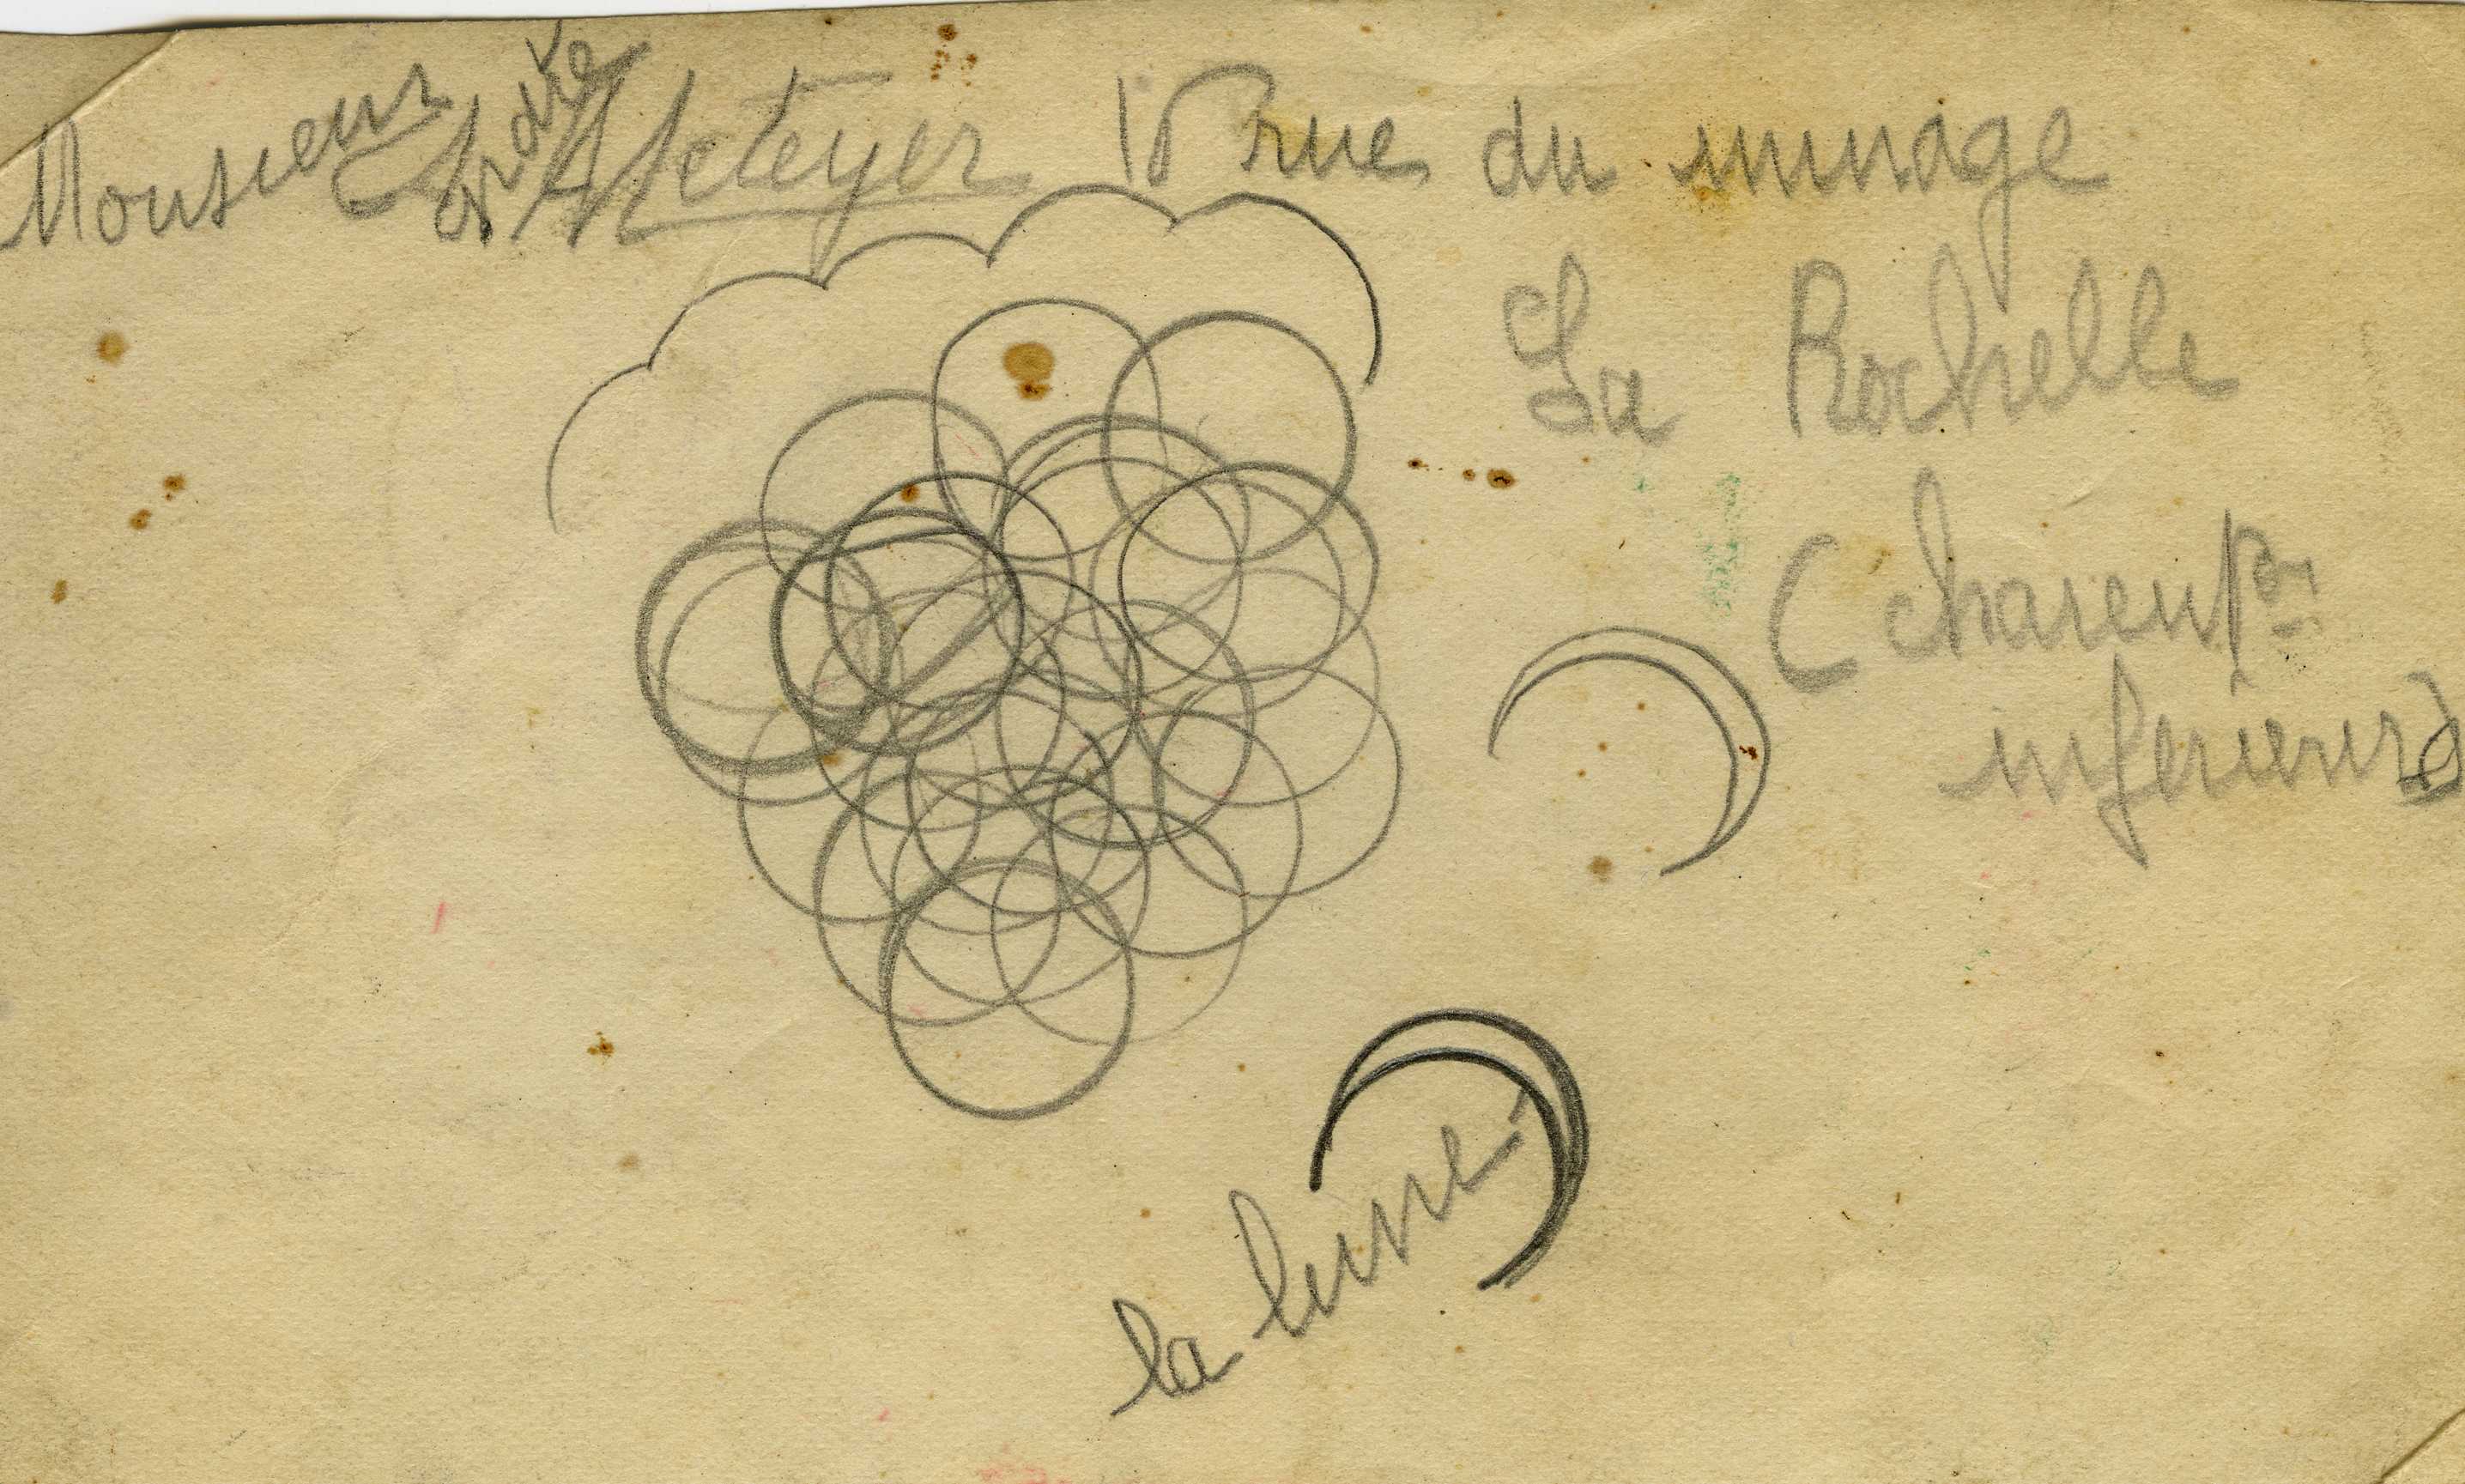 Monsieur Meteyer rue du minage
La Rochelle
(charente
inferieure)
la lune